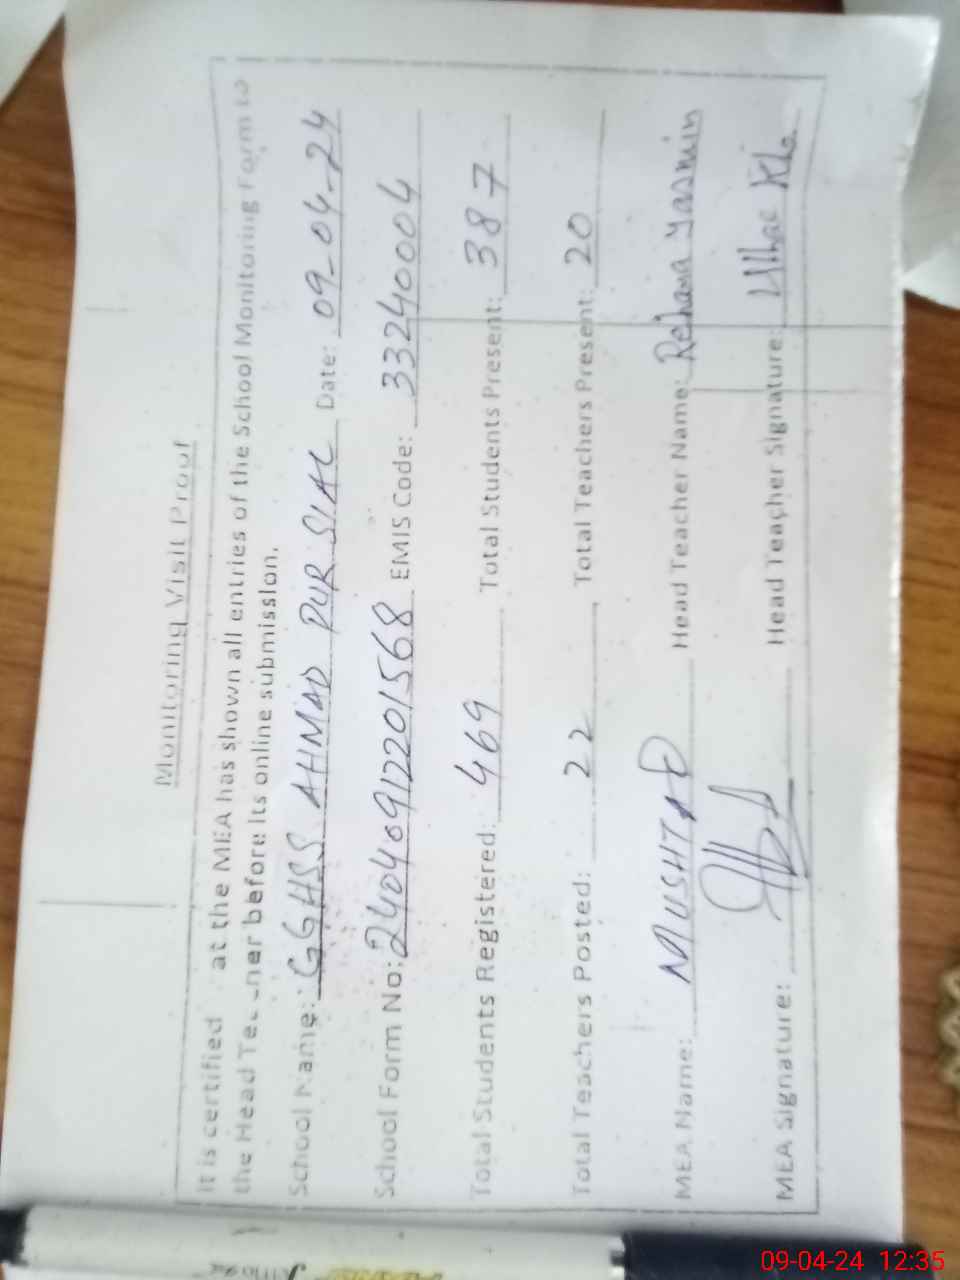 Monitoring Visit Proof
It is certified at the MEA has shown all entries of the School Monitoring Form to
the Head Teacher before its online submission.
School Name: GGHSS AHMAD PUR SIAL Date: 09-04-24
School Form No: 24040912201568 EMIS Code: 33240004
Total Students Registered: 469 Total Students Present: 387
Total Teachers Posted: 22 Total Teachers Present: 20
MEA Name: MUSHTAP Head Teacher Name: Rehana Yasmin
MEA Signature: Head Teacher Signature:
09-04-24 12:35